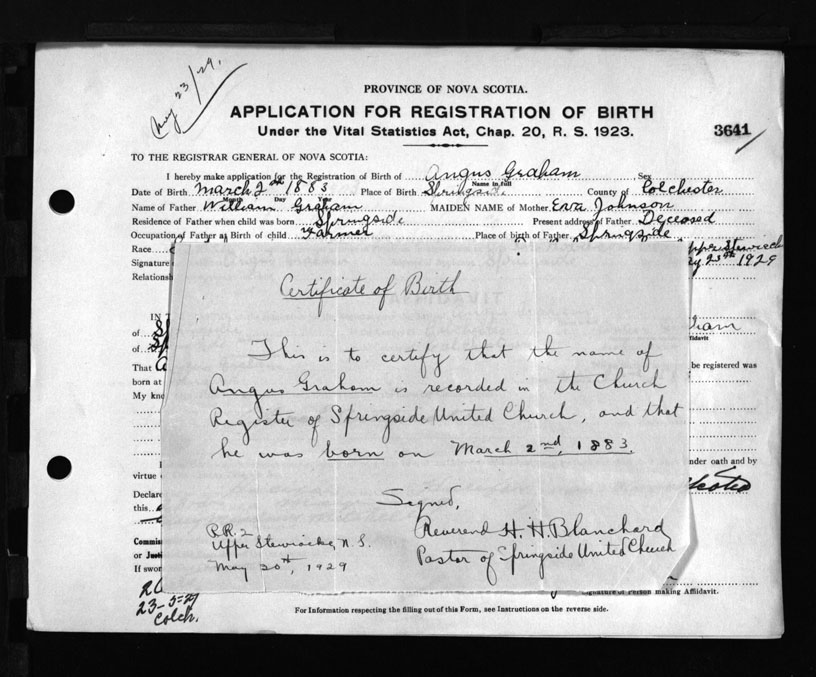 May 23/29.
PROVINCE OF NOVA SCOTIA.
APPLICATION FOR REGISTRATION OF BIRTH
Under the Vital Statistics Act, Chap. 20, R. S. 1923.
3641
TO THE REGISTRAR GENERAL OF NOVA SCOTIA:
I hereby make application for the Registration of Birth of Angus Graham Sex
Name in full
Date of Birth March 2nd 1883 Place of Birth Springside County of Colchester
Month Day Year
Name of Father William Graham MAIDEN NAME of Mother Johnson
Residence of Father when child was born Springside Present address of Father Deceased
Occupation of Father at Birth of child Farmer Place of birth of Father Springside
Race
Signature 23rd 1929
Relationsh
Certificate of Birth
IN T
of
of
This is to certify that the name of
That be registered was
Angus Graham is recorded in the Church
born at
My kno
Register of Springside United Church, and that
he was born on March 2nd, 1883.
I nder oath and by
virtue
Signed,
Declare
this
P.R. 2 Reverend H. H. Blanchard
Upper Stewiacke, N. S. Pastor of Springside United Church
May 20th, 1929
Commis
or Justi
If swor
Signature of Person making Affidavit.
23-5-29
Colch.
For Information respecting the filling out of this Form, see Instructions on the reverse side.